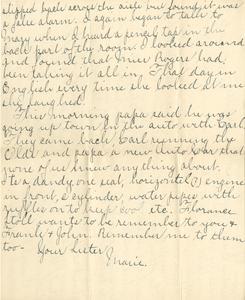 slipped back across the aisle but found it was
a false alarm. I again began to talk to
when I heard a pencil tap in the
back part of the room. I looked around
and found that Miss Rogers had
been taking it all in. That day in
English every time she looked at me
she laughed.
This morning papa said he was
going up town in the auto with Earl.
They came back, Earl running the
Olds and papa a new auto car that
none of us knew anything about.
It's a dandy, one seat, horizontal (?) engine
in front, 2 cylinder, water pipes with
ruffles on to keep cool etc. Florence
Stoll wants to be remember to you &
Frank & John. Remember me to them
too-
Your sister,
Marie.